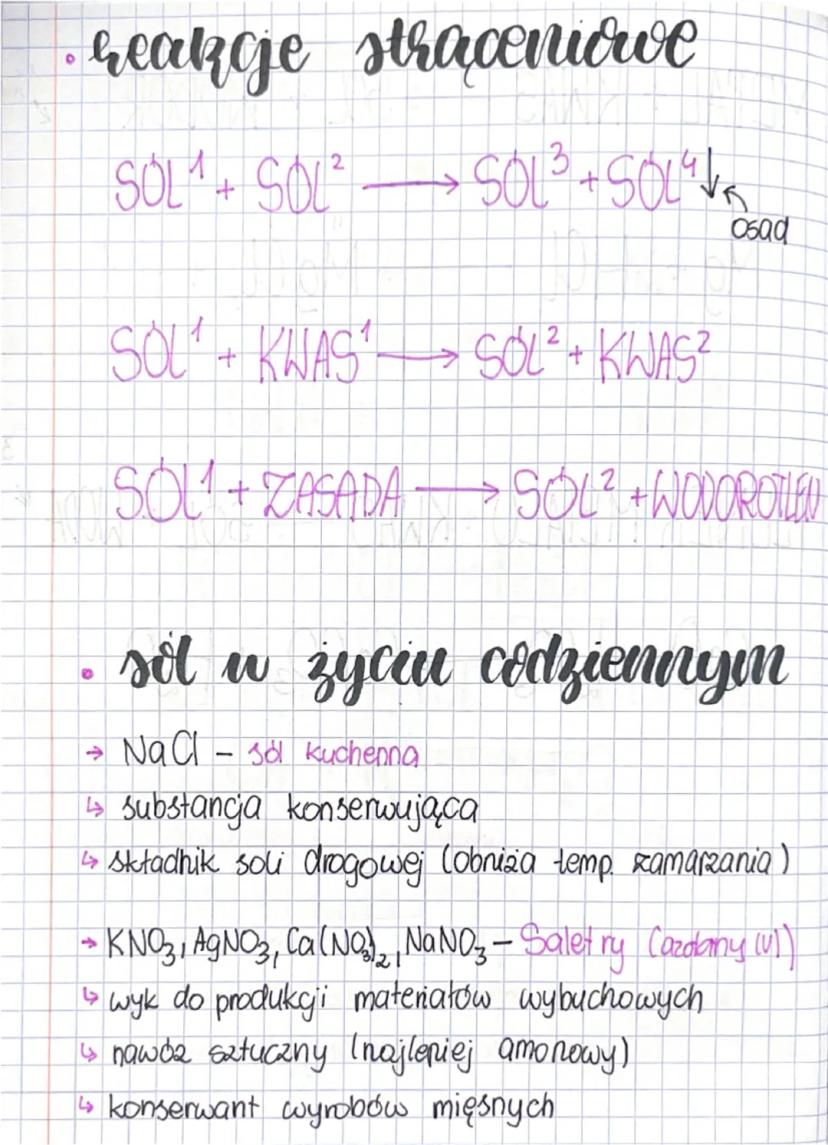 • reakcje strąceniowe
SÓL¹ + SÓL² → SÓL³ + SÓL⁴↓
osad
SÓL¹ + KWAS¹ → SÓL² + KWAS²
SÓL¹ + ZASADA → SÓL² + WODOROTLEN
• sól w życiu codziennym
→ NaCl – sól kuchenna
↳ substancja konserwująca
↳ składnik soli drogowej (obniża temp. zamarzania)
→ KNO₃, AgNO₃, Ca(NO₃)₂, NaNO₃ – Saletry (azotany (V))
↳ wyk do produkcji materiałów wybuchowych
↳ nawóz sztuczny (najlepiej amonowy)
↳ konserwant wyrobów mięsnych